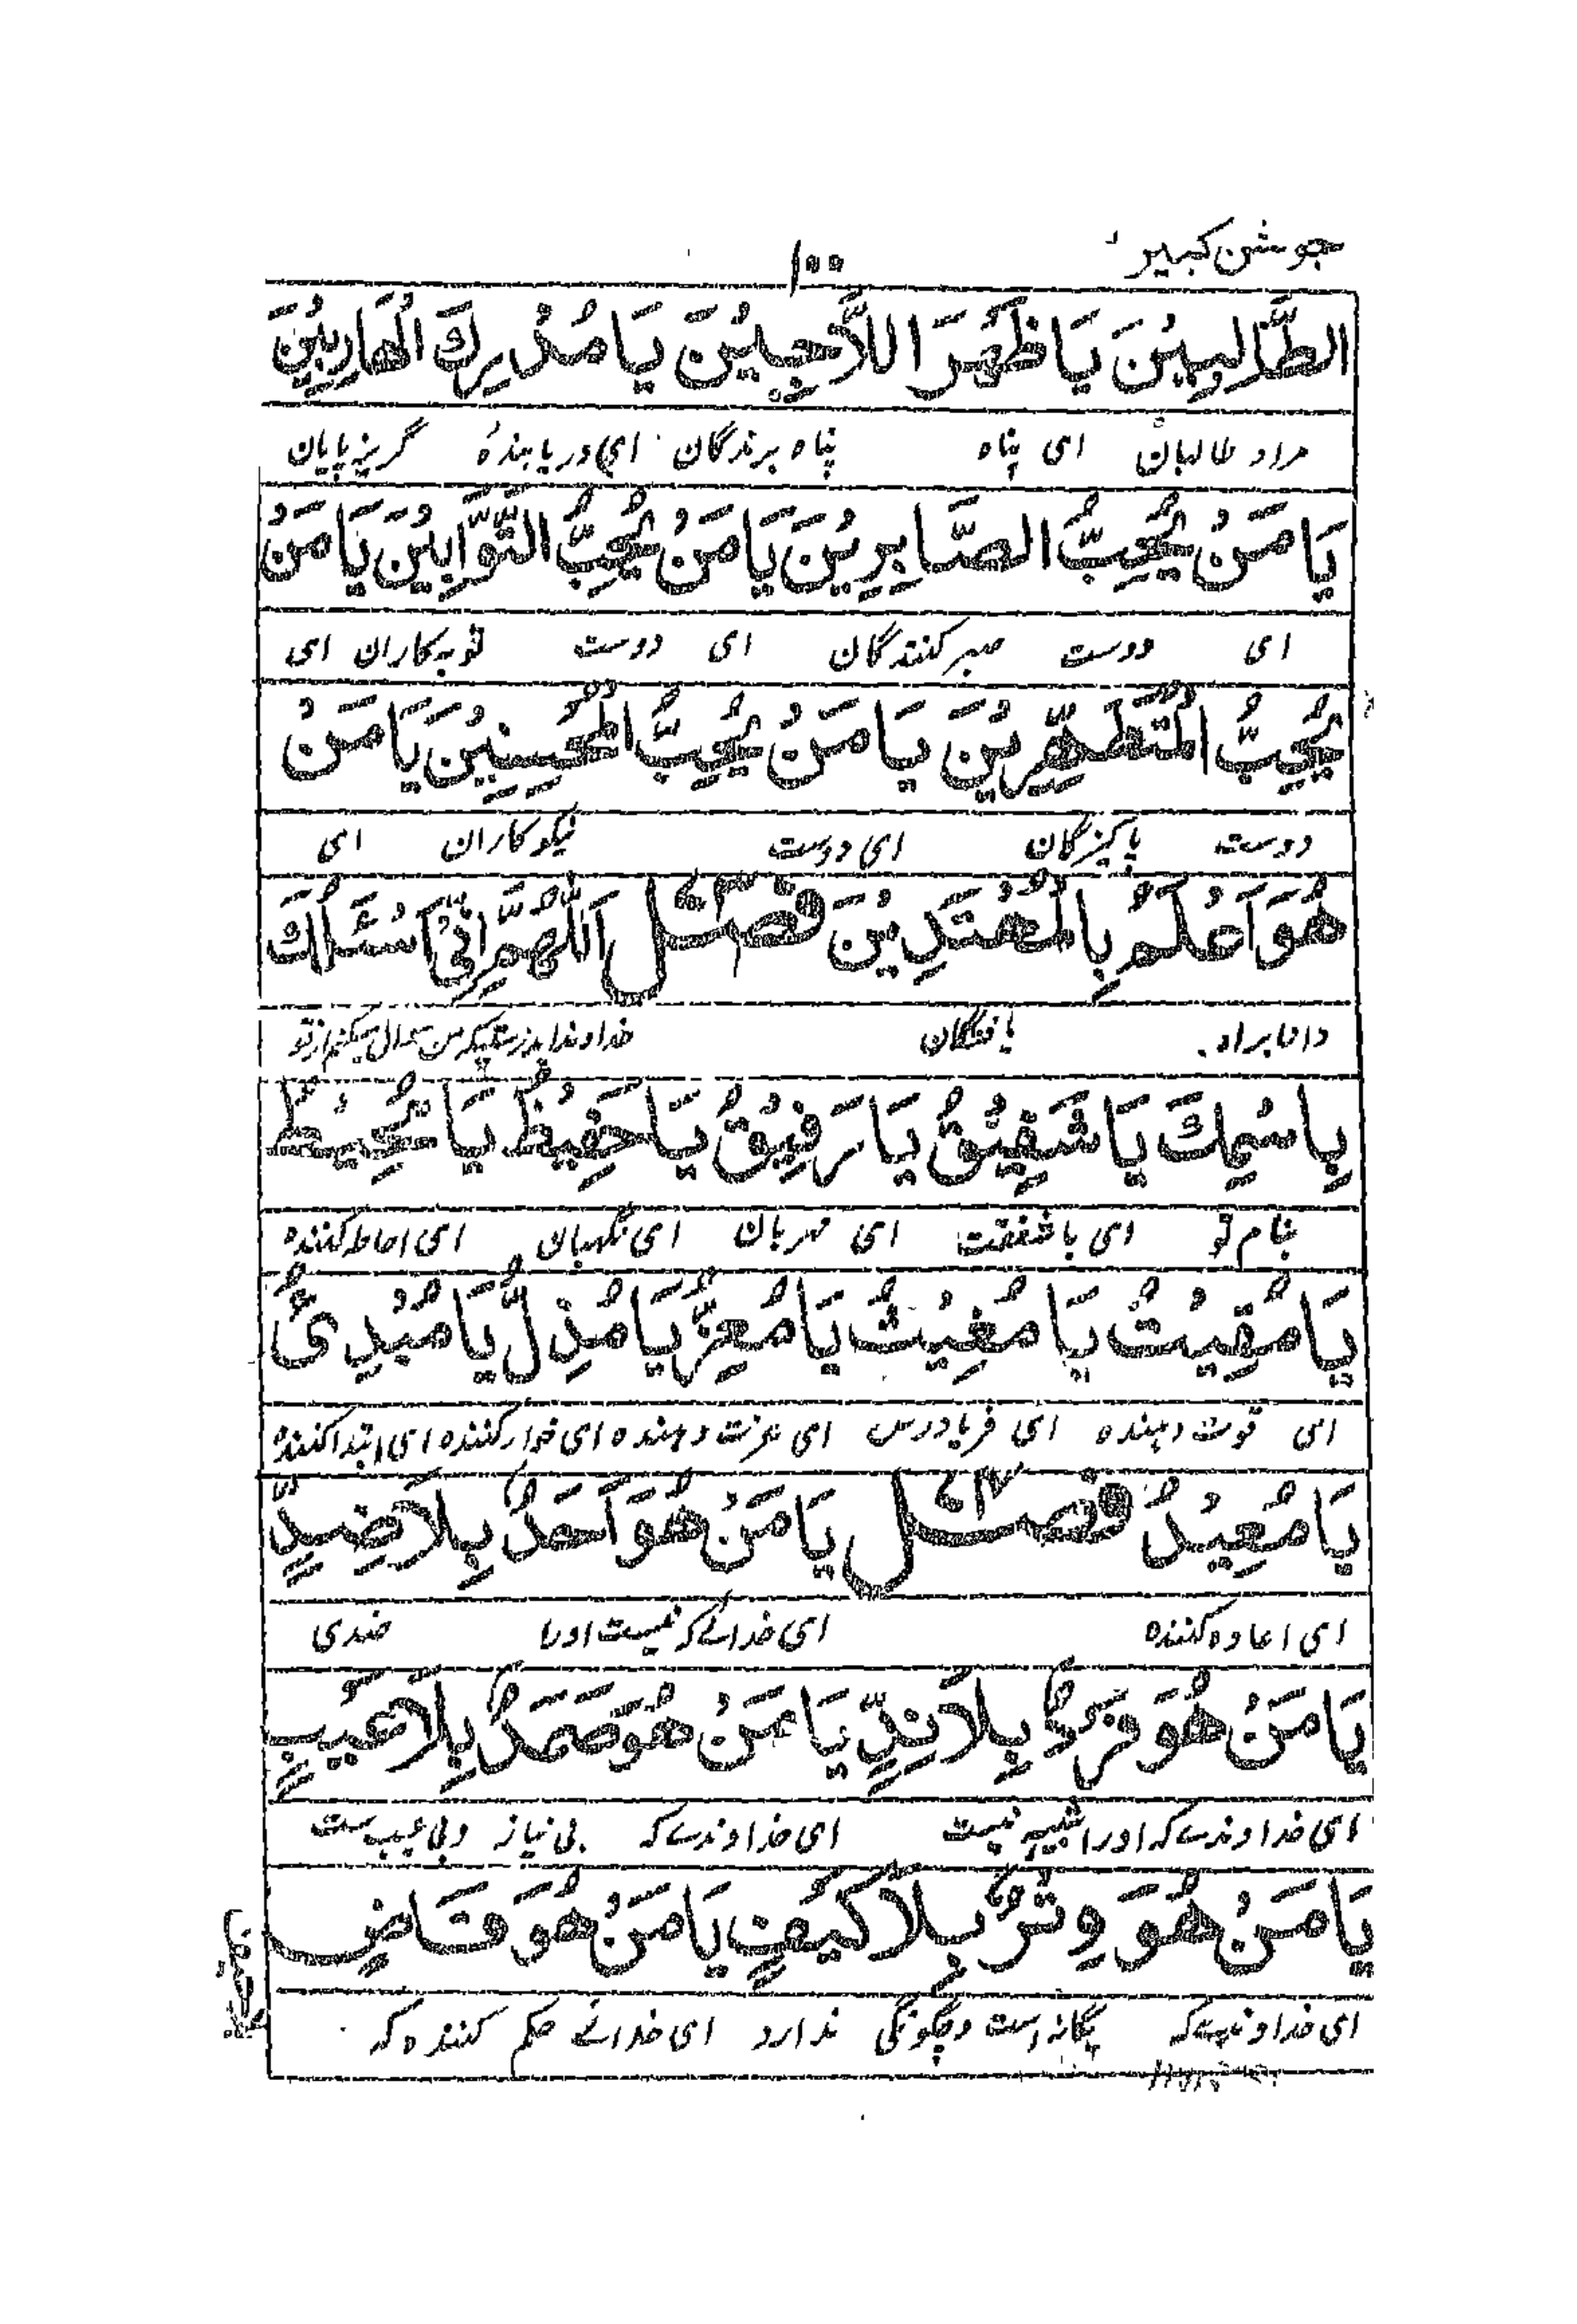 جوشن کبیر
۱۰۰
الطَّالِبِيْنَ يَا ظَهْرَ اللَّاجِيْنَ يَا مُدْرِكَ الْهَارِبِيْنَ
مراد طالبان ای پناه پناه برندگان ای دریابندهٔ گریزپایان
يَا مَنْ يُحِبُّ الصَّابِرِيْنَ يَا مَنْ يُحِبُّ التَّوَّابِيْنَ يَا مَنْ
ای دوست صبر کنندگان ای دوست توبه کاران ای
يُحِبُّ الْمُتَطَهِّرِيْنَ يَا مَنْ يُحِبُّ الْمُحْسِنِيْنَ يَا مَنْ
دوست پاکیزگان ای دوست نیکوکاران ای
هُوَ اَعْلَمُ بِالْمُهْتَدِيْنَ فصل اَللّٰهُمَّ اِنِّيْ اَسْئَلُكَ
دانا براه یافتگان خداوندا بدرستیکه من سوال میکنم از تو
بِاسْمِكَ يَا شَفِيْقُ يَا رَفِيْقُ يَا حَفِيْظُ يَا مُحِيْطُ
بنام تو ای باشفقت ای مهربان ای نگهبان ای احاطه کننده
يَا مُقِيْتُ يَا مُغِيْثُ يَا مُعِزُّ يَا مُذِلُّ يَا مُبْدِئُ
ای قوت دهنده ای فریادرس ای عزت دهنده ای خوار کننده ای ابتدا کننده
يَا مُعِيْدُ فصل يَا مَنْ هُوَ اَحَدٌ بِلَا ضِدٍّ
ای اعاده کننده ای خدائے که نیست اورا ضدی
يَا مَنْ هُوَ فَرْدٌ بِلَا نِدٍّ يَا مَنْ هُوَ صَمَدٌ بِلَا عَيْبٍ
ای خداوندے که اورا شبیه نیست ای خداوندے که بی نیاز و بی عیب ست
يَا مَنْ هُوَ وِتْرٌ بِلَا كَيْفٍ يَا مَنْ هُوَ قَاضٍ
ای خداوندیکه یگانه است و چگونگی ندارد ای خدائے حکم کننده که